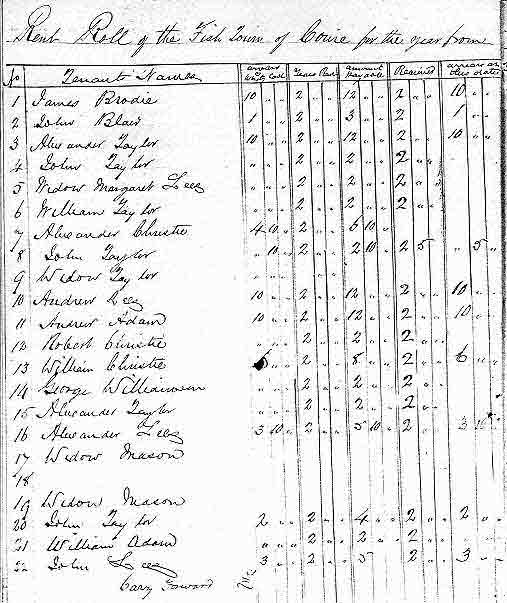 Rent Roll of the Fish Town of Cowie for the year from
No Tenants Names arrears Years Rent amount payable Received arrears at this date
1 James Brodie 10 " " 2 " " 12 " " 2 " " 10 " "
2 John Blair 1 " " 2 " " 3 " " 2 " " 1 " "
3 Alexander Taylor 10 " " 2 " " 12 " " 2 " " 10 " "
4 John Taylor " " " 2 " " 2 " " 2 " "
5 Widow Margaret Lees " " " 2 " " 2 " " 2 " "
6 William Taylor " " " 2 " " 2 " " 2 " "
7 Alexander Christie 4 10 " 2 " " 6 10 "
8 John Taylor " 10 " 2 " " 2 10 " 2 5 " 5 "
9 Widow Taylor " " "
10 Andrew Lees 10 " " 2 " " 12 " " 2 " " 10 " "
11 Andrew Adam 10 " " 2 " " 12 " " 2 " " 10 " "
12 Robert Christie " " " 2 " " 2 " " 2 " "
13 William Christie 6 " " 2 " " 8 " " 2 " " 6 " "
14 George Williamson " " " 2 " " 2 " " 2 " "
15 Alexander Taylor " " " 2 " " 2 " " 2 " "
16 Alexander Lees 3 10 " 2 " " 5 10 " 2 " " 3 10
17 Widow Mason
18
19 Widow Mason
20 John Taylor 2 " " 2 " " 4 " " 2 " " 2 " "
21 William Adam " " " 2 " " 2 " " 2 " "
22 John Lees 3 " " 2 " " 5 2 " " 3 " "
Cary Forward